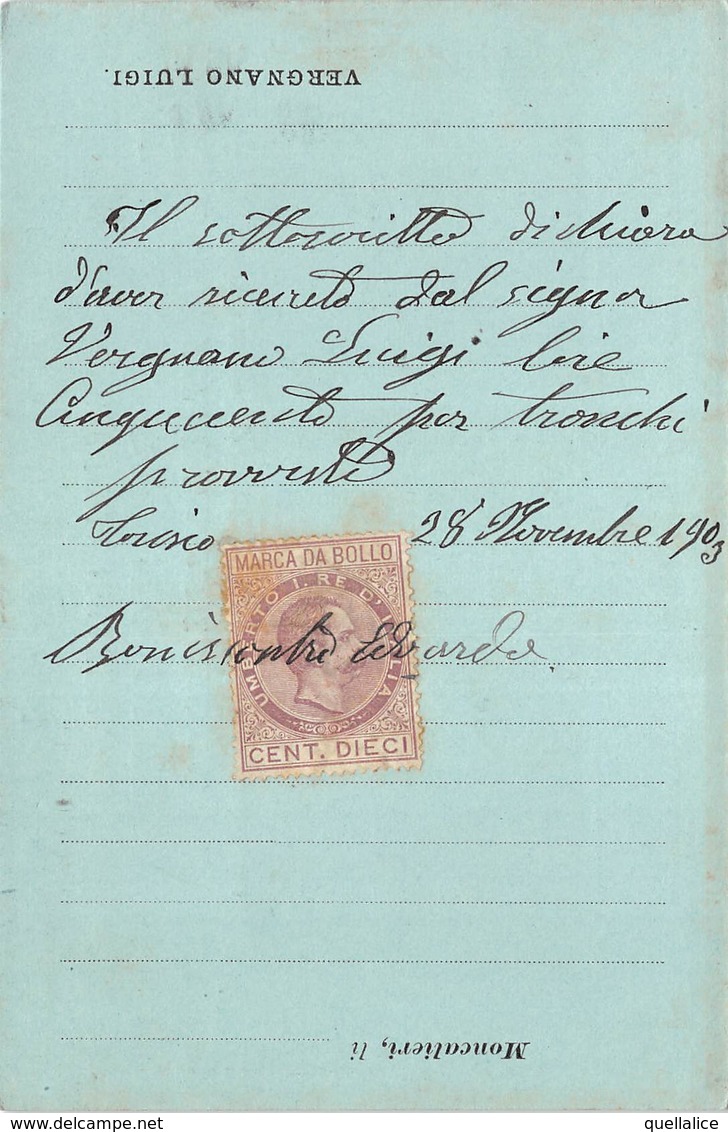 VERGNANO LUIGI.
Il sottoscritto dichiara
d'aver ricevuto dal signor
Vergnano Luigi lire
Cinquecento per tronchi
provvisti
Torino 28 Novembre 1903
MARCA DA BOLLO
UMBERTO I. RE D'ITALIA
CENT. DIECI
Moncalieri, li
quellalice